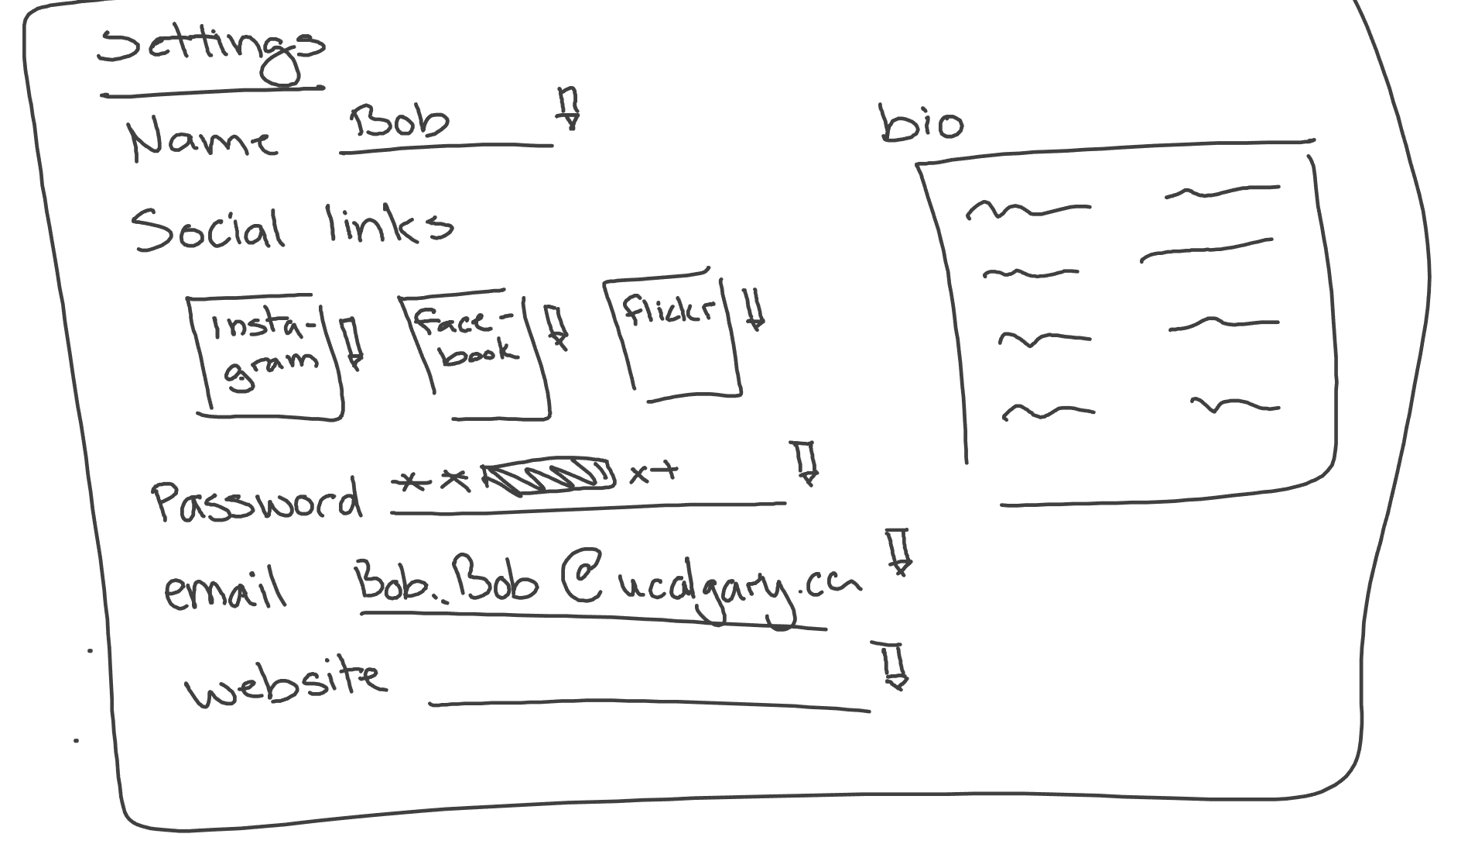 Settings
Name Bob
bio
Social links
Insta-
gram
face-
book
flickr
Password ** x+
email Bob.Bob@ucalgary.ca
website